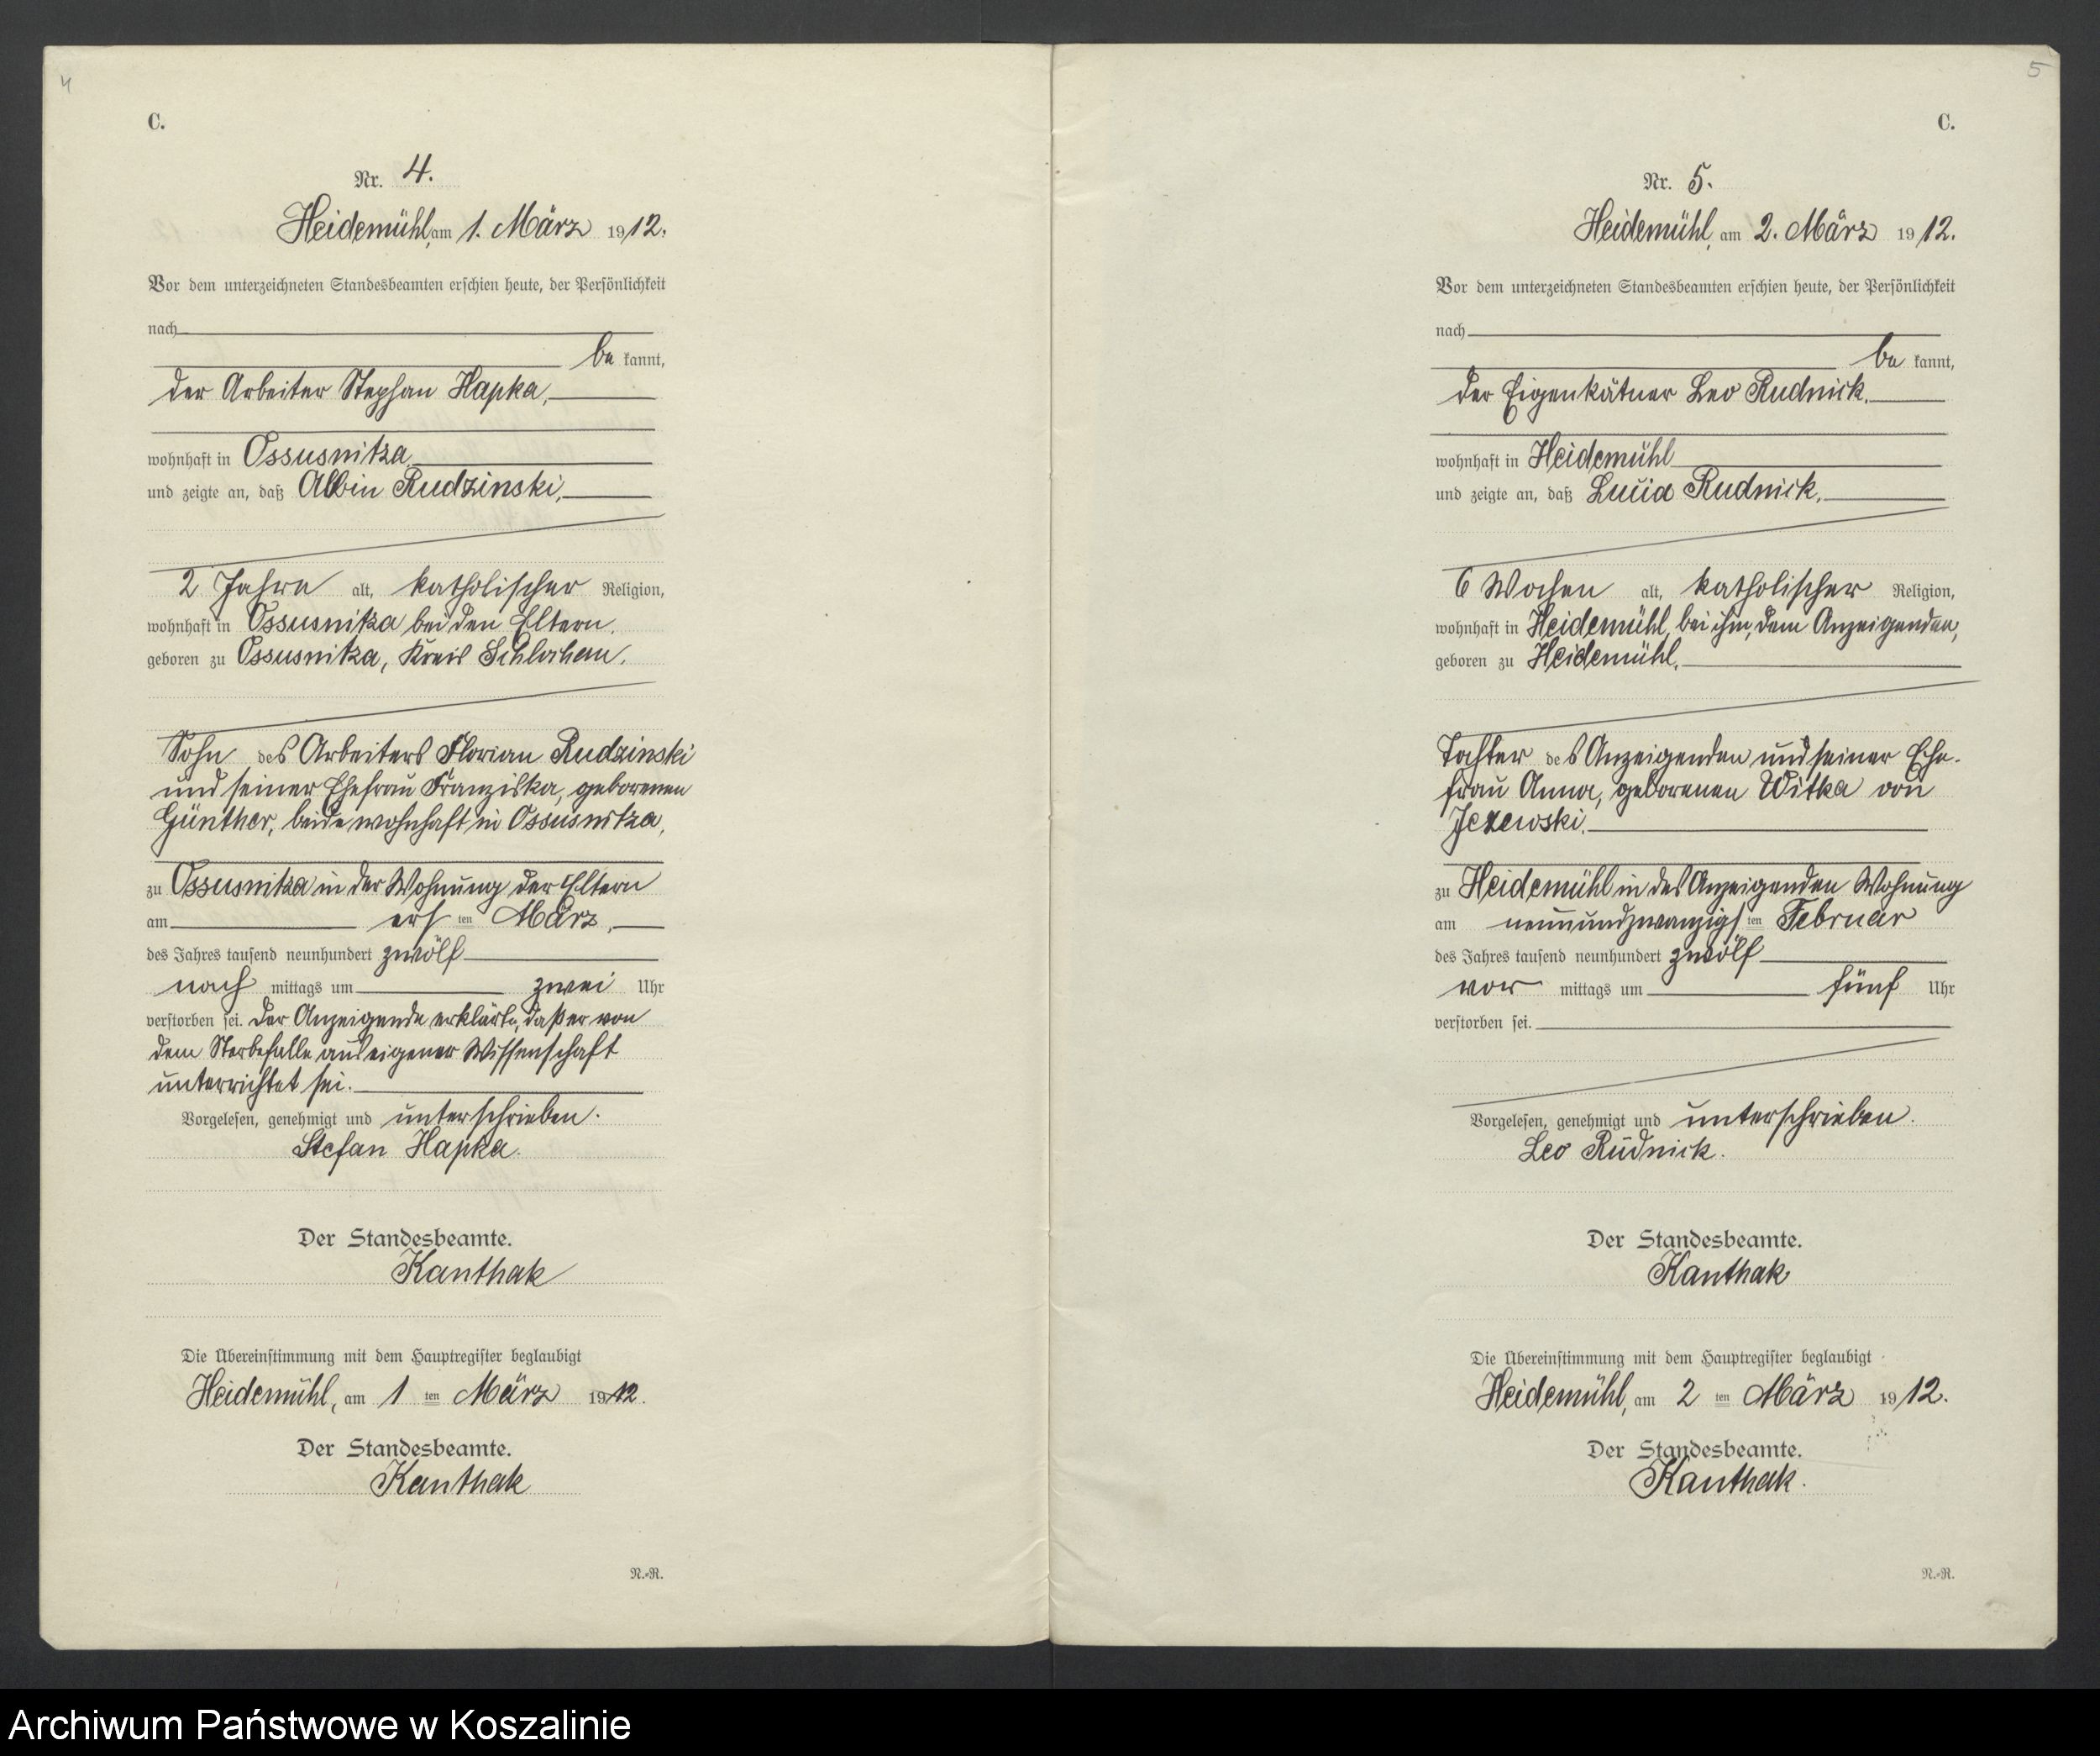 4
C.
Nr. 4.
Heidemühl, am 1. März 1912.
Vor dem unterzeichneten Standesbeamten erschien heute, der Persönlichkeit
nach
be kannt,
der Arbeiter Stephan Hapka,
wohnhaft in Ossusnitza
und zeigte an, daß Albin Rudzinski,
2 Jahre alt, katholischer Religion,
wohnhaft in Ossusnitza bei den Eltern,
geboren zu Ossusnitza, Kreis Schlochau,
Sohn des Arbeiters Florian Rudzinski
und seiner Ehefrau Franziska, geborenen
Günther, beide wohnhaft in Ossusnitza,
zu Ossusnitza in der Wohnung der Eltern
am ers ten März,
des Jahres tausend neunhundert zwölf
nach mittags um zwei Uhr
verstorben sei. Der Anzeigende erklärte, daß er von
dem Sterbefalle aus eigener Wissenschaft
unterrichtet sei.
Vorgelesen, genehmigt und unterschrieben.
Stefan Hapka.
Der Standesbeamte.
Kanthak
Die Übereinstimmung mit dem Hauptregister beglaubigt
Heidemühl, am 1 ten März 1912.
Der Standesbeamte.
Kanthak
N.-R.
5
C.
Nr. 5.
Heidemühl, am 2. März 1912.
Vor dem unterzeichneten Standesbeamten erschien heute, der Persönlichkeit
nach
be kannt,
der Eigenkätner Leo Rudnick,
wohnhaft in Heidemühl
und zeigte an, daß Lucia Rudnick,
6 Wochen alt, katholischer Religion,
wohnhaft in Heidemühl, bei ihm, dem Anzeigenden,
geboren zu Heidemühl,
Tochter des Anzeigenden und seiner Ehe-
frau Anna, geborenen Witka von
Jezewski,
zu Heidemühl in des Anzeigenden Wohnung
am neunundzwanzigs ten Februar
des Jahres tausend neunhundert zwölf
vor mittags um fünf Uhr
verstorben sei.
Vorgelesen, genehmigt und unterschrieben.
Leo Rudnick.
Der Standesbeamte.
Kanthak
Die Übereinstimmung mit dem Hauptregister beglaubigt
Heidemühl, am 2 ten März 1912.
Der Standesbeamte.
Kanthak.
N.-R.
Archiwum Państwowe w Koszalinie